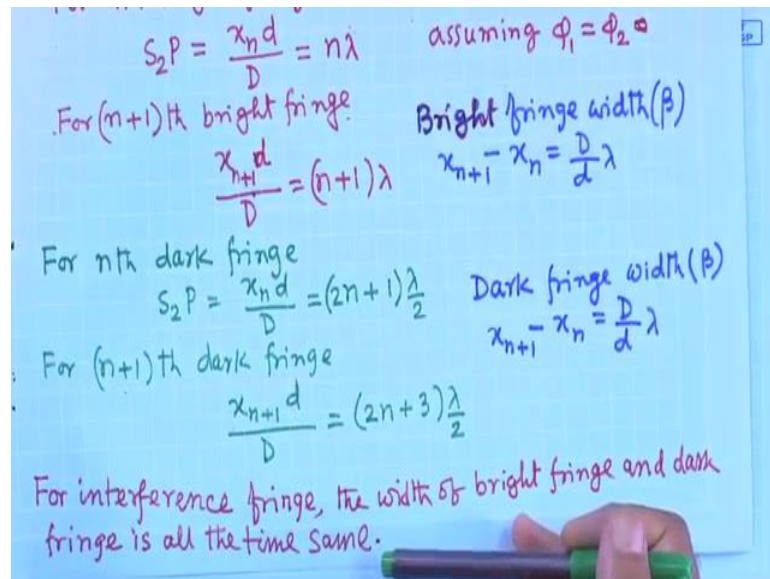 S₂P = xₙd/D = nλ assuming φ₁ = φ₂
For (n+1)th bright fringe Bright fringe width (β)
xₙ₊₁d/D = (n+1)λ xₙ₊₁ - xₙ = D/d λ
For nth dark fringe
S₂P = xₙd/D = (2n+1)λ/2 Dark fringe width (β)
For (n+1)th dark fringe xₙ₊₁ - xₙ = D/d λ
xₙ₊₁d/D = (2n+3)λ/2
For interference fringe, the width of bright fringe and dark
fringe is all the time same.